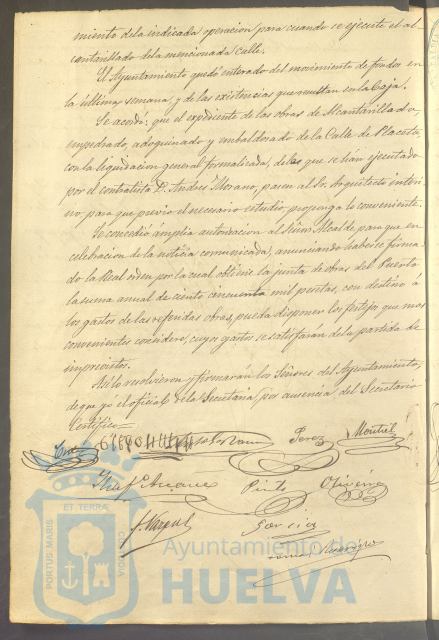 miento dela indicada operacion para cuando se ejecute el al-
cantarillado dela mencionada calle.
El Ayuntamiento quedó enterado del movimiento de fondos en
la última semana, y de las existencias que resultan en la Caja.
Se acordó: que el expediente de las obras de Alcantarillado,
empedrado, adoquinado y embaldosado de la Calle de Placeta,
con la liquidacion general formalizada, delas que se han ejecutado
por el contratista D. Andres Morano, pasen al Sr. Arquitecto interi-
no, para que previo el necesario estudio, proponga lo conveniente.
Se concedió amplia autorizacion al Señor Alcalde para que en
celebracion de la noticia comunicada, anunciando haberse firma-
do la Real orden por la cual obtiene la junta de obras del Puerto
la suma anual de ciento cincuenta mil pesetas, con destino á
los gastos de las referidas obras, pueda disponer los festejos que mas
convenientes considere, cuyo gasto se satisfarán dela partida de
imprevistos.
Asi lo resolvieron y firmarán los Señores del Ayuntamiento,
de que yo el oficial dela Secretaria, por ausencia del Secretario
Certifico=
Perez Montiel
Pinto Oliveira
J. Vargas Garcia
PORTUS MARIS ET TERRAE CUSTODIA
Ayuntamiento de
HUELVA